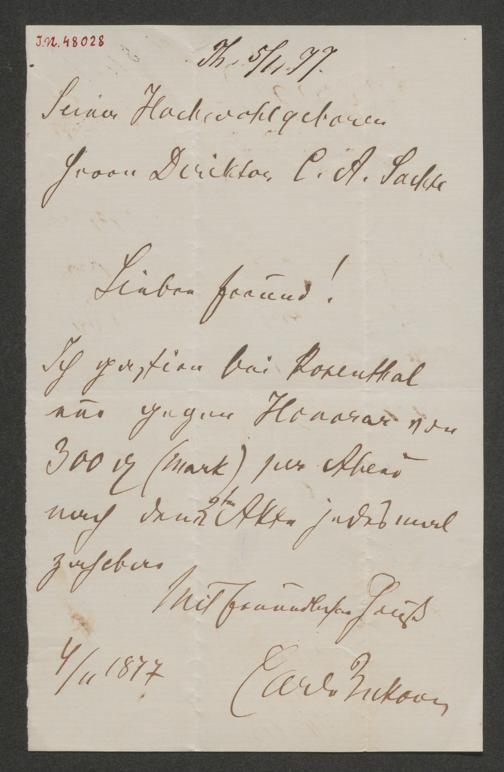 J.N. 48028
Th. 5/11. 77.
Seiner Hochwohlgeboren
Herrn Direktor C. A. Sachse
Lieber Freund!
Ich gastire bei Rosenthal
nur gegen Honorar von
300 M (Mark) per Abend
nach dem 2ten Akte jedesmal
zahlbar
Mit freundlichem Gruß
4/11 1877
Carl